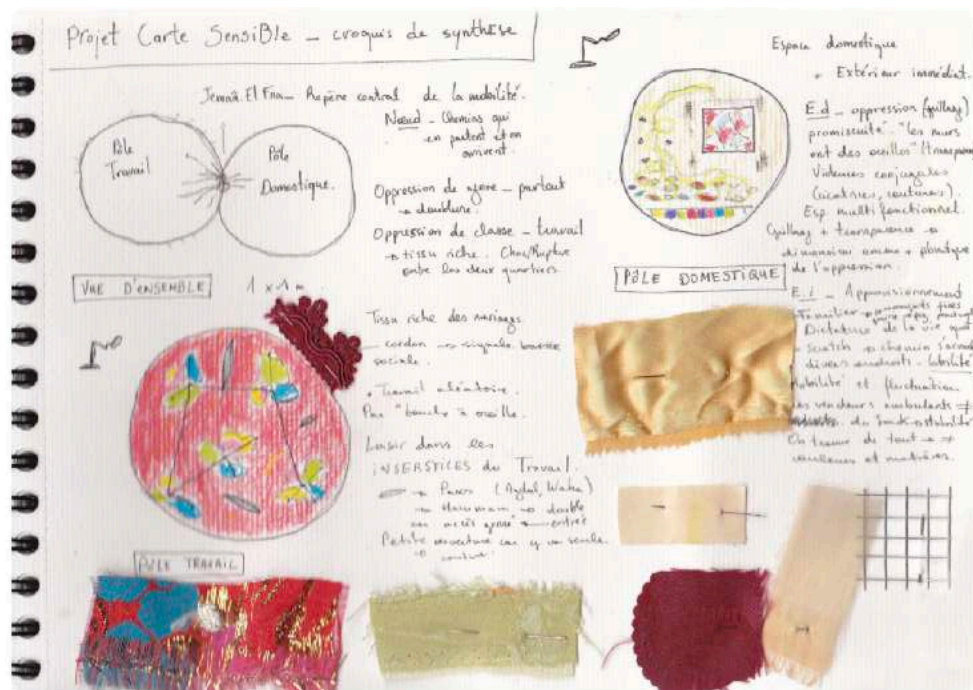 Projet Carte Sensible _ croquis de synthèse
Jemaâ El Fna _ Repère central de la mobilité.
Nœud _ Chemins qui
en partent et en
arrivent.
Pôle
Travail
Pôle
Domestique.
Oppression de genre _ partout
→ doublure.
Oppression de classe _ travail
→ tissu riche. Choc/Rupture
entre les deux quartiers.
VUE D'ENSEMBLE
1 x 1 m
Tissu riche des mariages
cordon → signale
sociale.
+ Travail aléatoire.
Par "bouche à oreille.
Loisir dans les
INSERSTICES du Travail.
→ Parcs (Agdal,
→ Hammam → double
entrée
Petite ouverture car y va seule
PÔLE TRAVAIL
Espace domestique
+ Extérieur immédiat.
E.d _ oppression
promiscuité. "les murs
ont des oreilles"
Violences conjugales
(cicatrices, coutures).
Esp. multifonctionnel.
+ transparence →
dimension + physique
de l'oppression.
PÔLE DOMESTIQUE
E.i _ Approvisionnement
Familier
Dictature de la vie
scratch → chemin
divers
Mobilité et fluctuation
des vendeurs ambulants ≠
du Souk → stabilité
On trouve de tout → ≠
couleurs et matières.